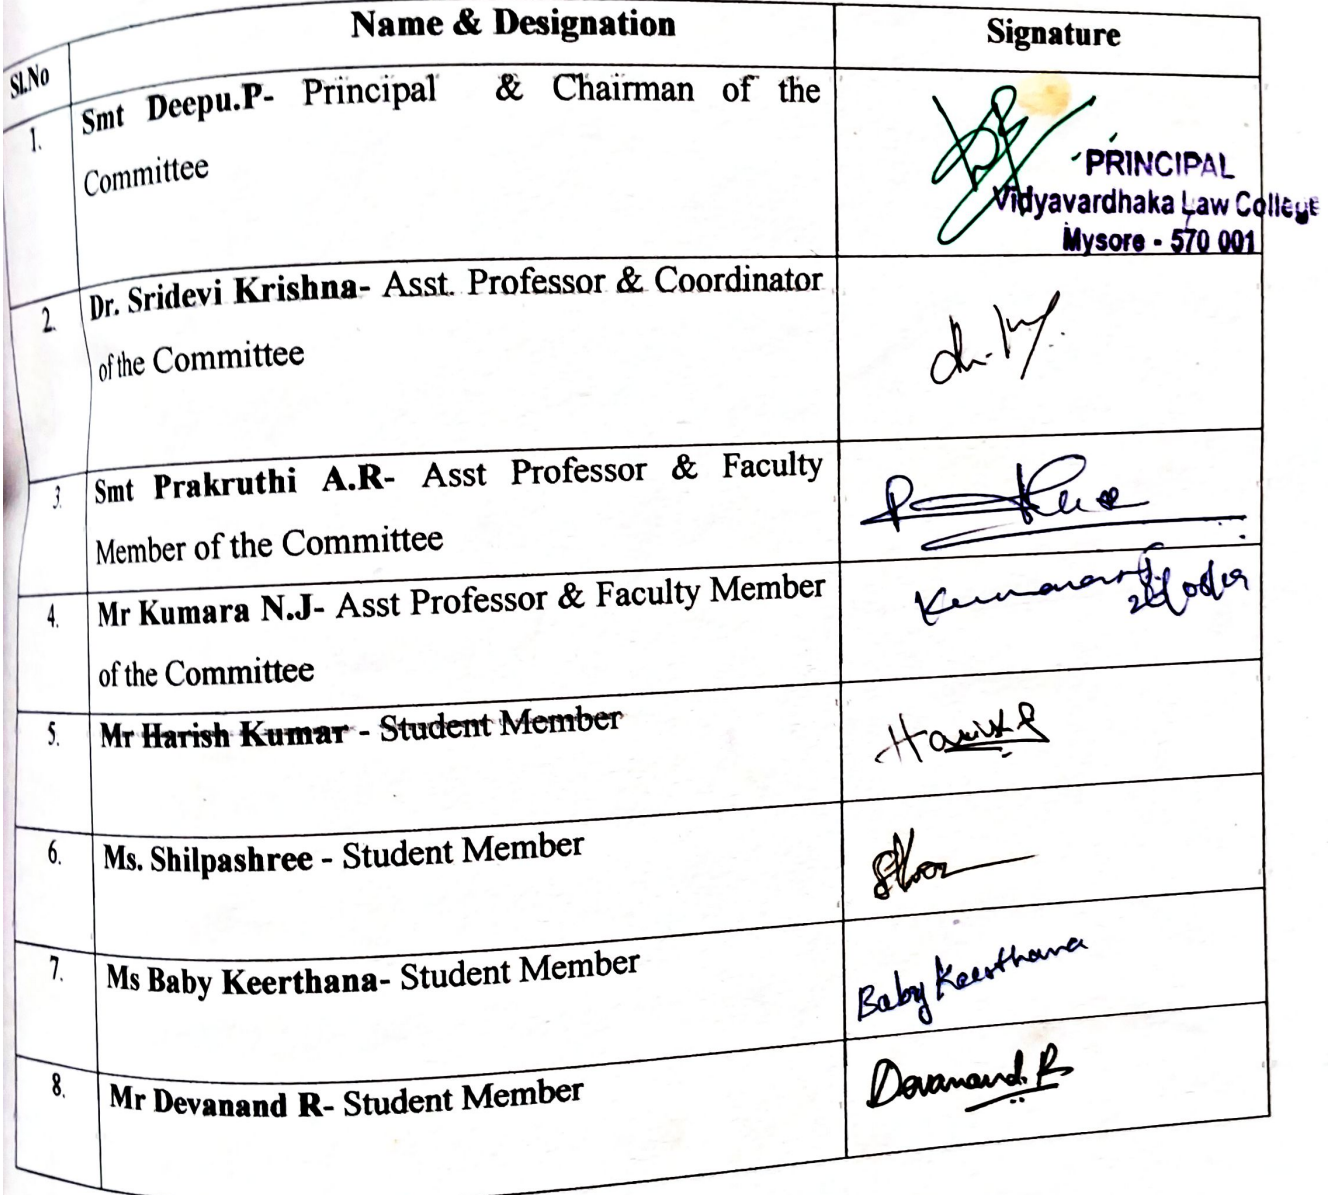 Sl.No Name & Designation Signature
1. Smt Deepu.P- Principal & Chairman of the
Committee
PRINCIPAL
Vidyavardhaka Law College
Mysore - 570 001
2. Dr. Sridevi Krishna- Asst. Professor & Coordinator
of the Committee
3. Smt Prakruthi A.R- Asst Professor & Faculty
Member of the Committee
4. Mr Kumara N.J- Asst Professor & Faculty Member
of the Committee
5. Mr Harish Kumar - Student Member
6. Ms. Shilpashree - Student Member
7. Ms Baby Keerthana- Student Member Baby Keerthana
8. Mr Devanand R- Student Member Devanand. R